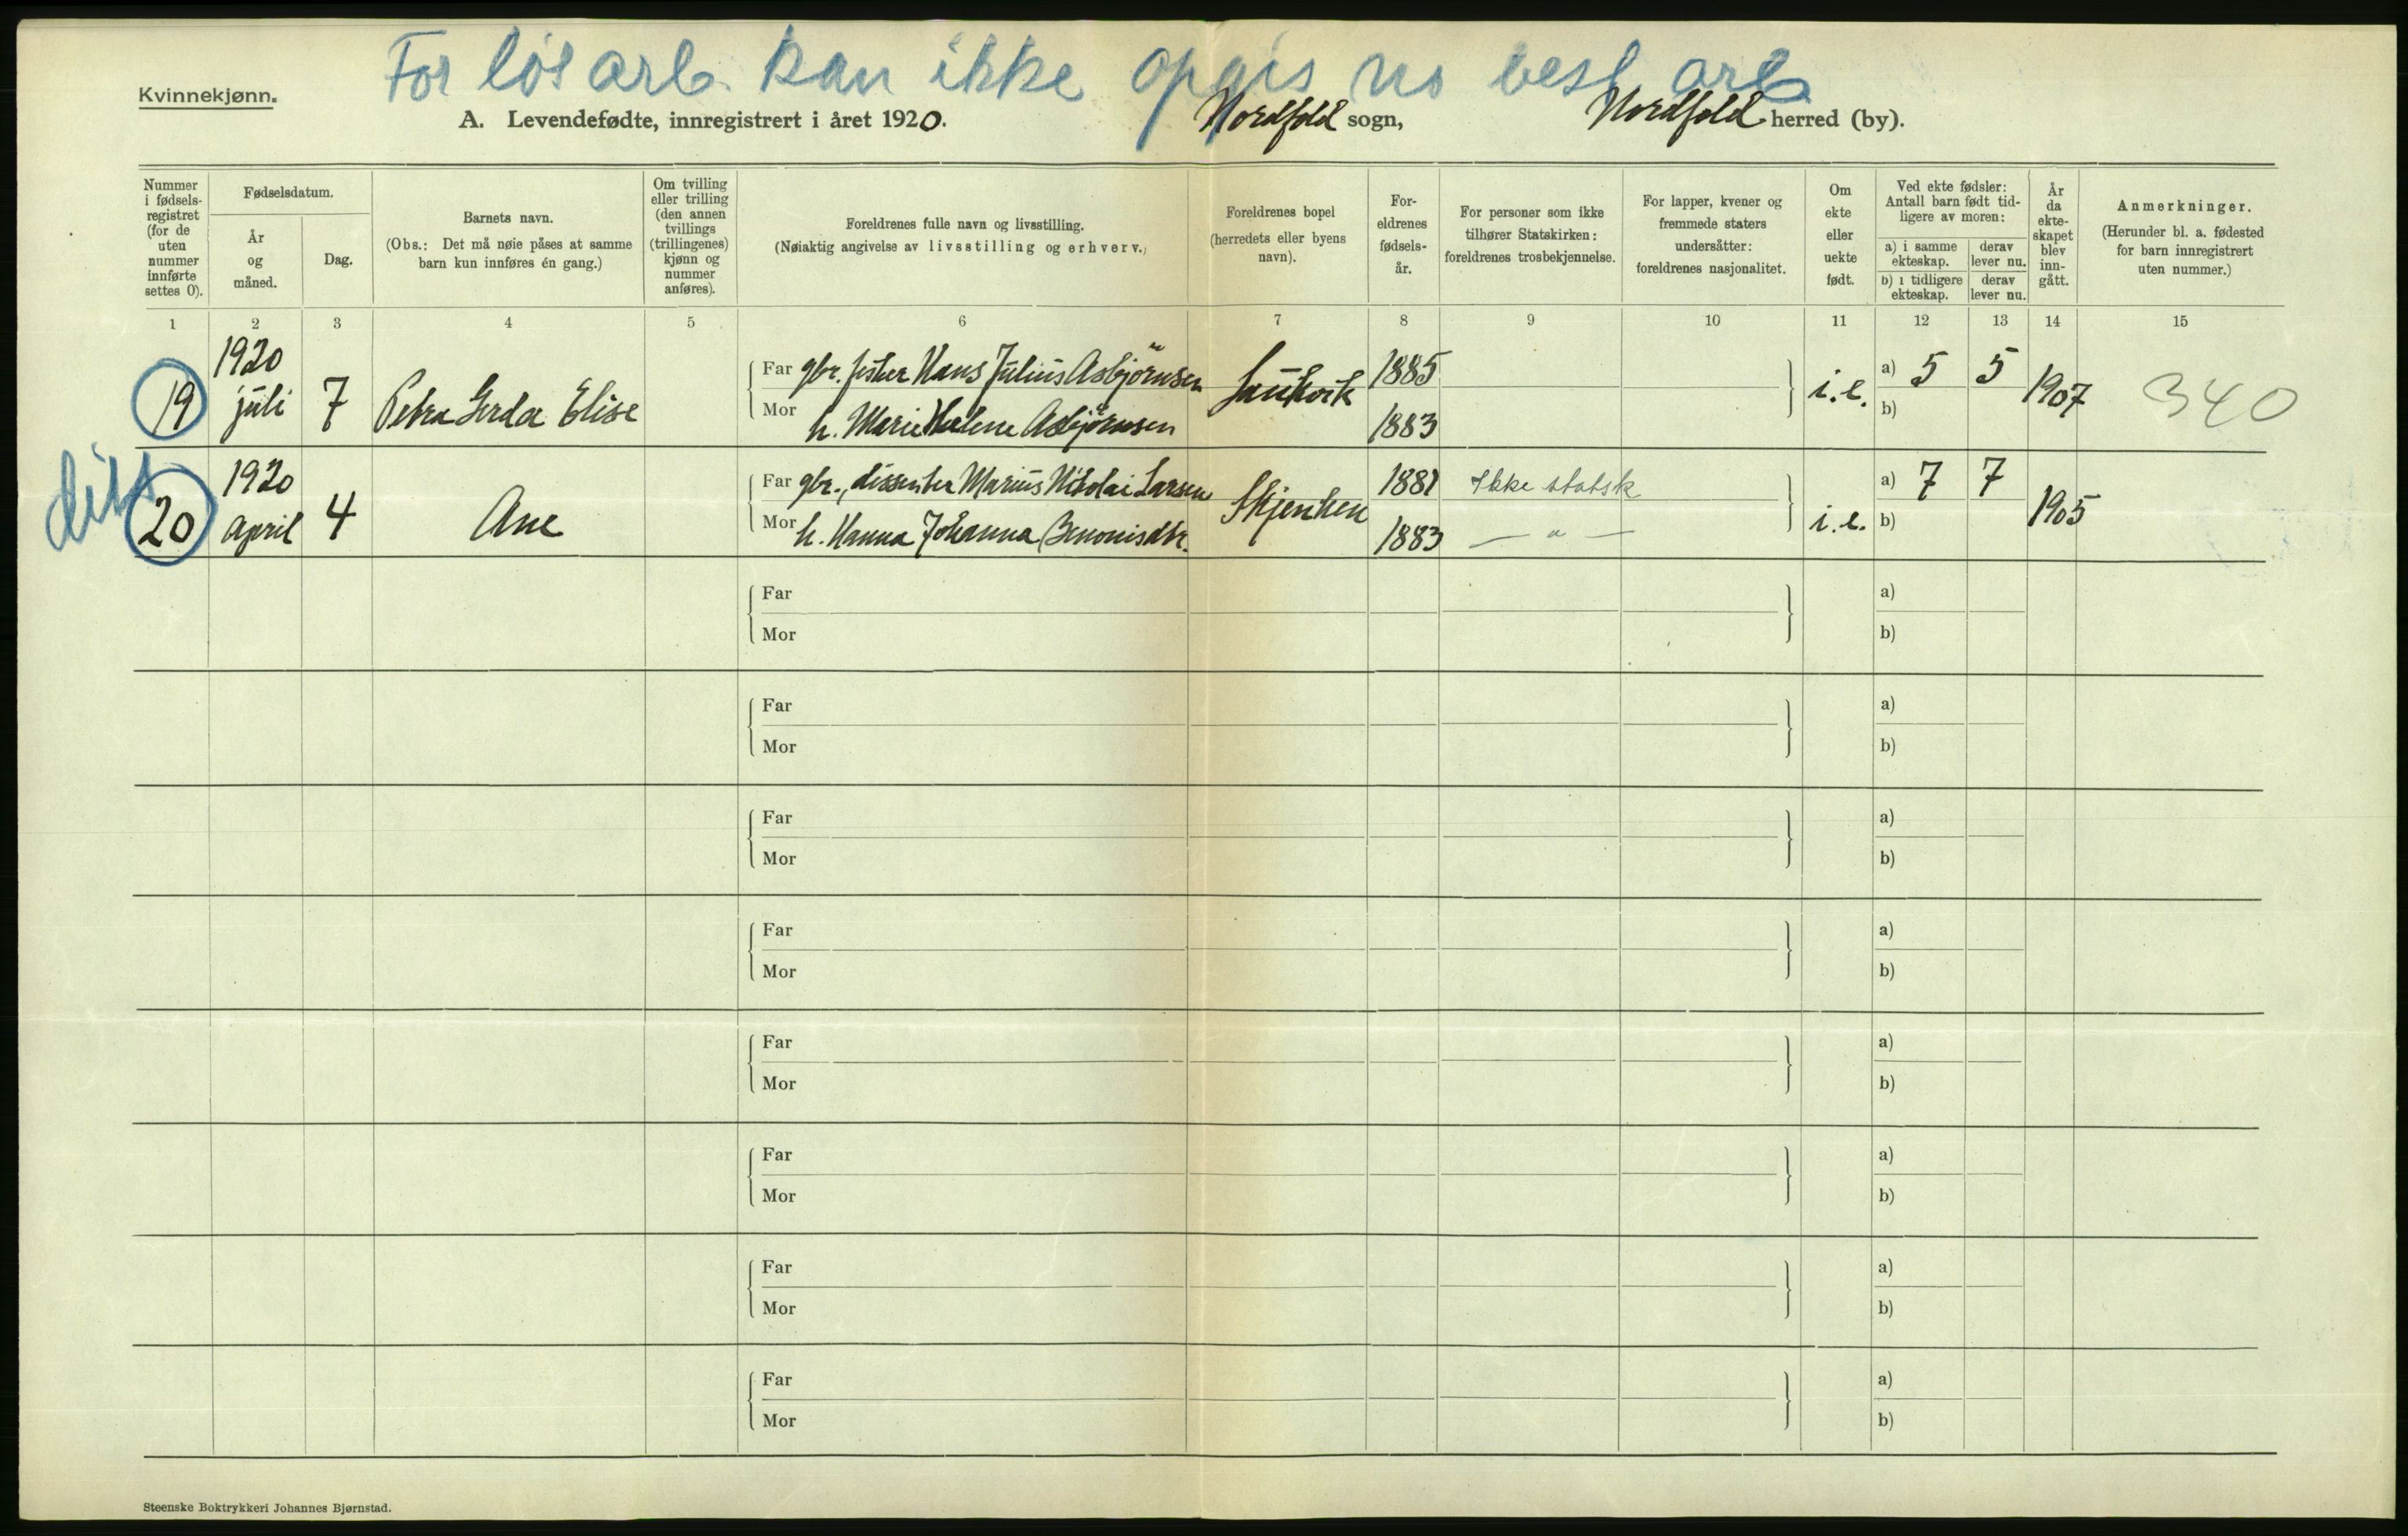 For løs arb. kan ikke opgis no best arb
Kvinnekjønn.
A. Levendefødte, innregistrert i året 1920. Nordfold sogn, Nordfold herred (by).
Nummer i fødsels-registret (for de uten nummer innførte settes 0).
Fødselsdatum.
År og måned.
Dag.
Barnets navn.
(Obs.: Det må nøie påses at samme barn kun innføres én gang.)
Om tvilling eller trilling (den annen tvillings (trillingenes) kjønn og nummer anføres).
Foreldrenes fulle navn og livsstilling.
(Nøiaktig angivelse av livsstilling og erhverv.)
Foreldrenes bopel (herredets eller byens navn).
For-eldrenes fødsels-år.
For personer som ikke tilhører Statskirken: foreldrenes trosbekjennelse.
For lapper, kvener og fremmede staters undersåtter: foreldrenes nasjonalitet.
Om ekte eller uekte født.
Ved ekte fødsler: Antall barn født tid-ligere av moren:
a) i samme ekteskap.
derav lever nu.
b) i tidligere ekteskap.
derav lever nu.
År da ekte-skapet blev inn-gått.
Anmerkninger.
(Herunder bl. a. fødested for barn innregistrert uten nummer.)
1 2 3 4 5 6 7 8 9 10 11 12 13 14 15
19 1920 juli 7 Petra Gerda Elise
Far gbr. fisker Hans Julius Asbjørnsen 1885
Mor h. Marie Helene Asbjørnsen 1883
i.e. a) 5 5 b) 1907 340
20 1920 April 4 Ane
Far gbr., dissenter Marius Nikolai Larsen 1881 Ikke statsk
Mor h. Hanna Johanna Benonisdtr. 1883 — " —
i.e. a) 7 7 b) 1905
Far a)
Mor b)
Far a)
Mor b)
Far a)
Mor b)
Far a)
Mor b)
Far a)
Mor b)
Far a)
Mor b)
Far a)
Mor b)
Far a)
Mor b)
Steenske Boktrykkeri Johannes Bjørnstad.